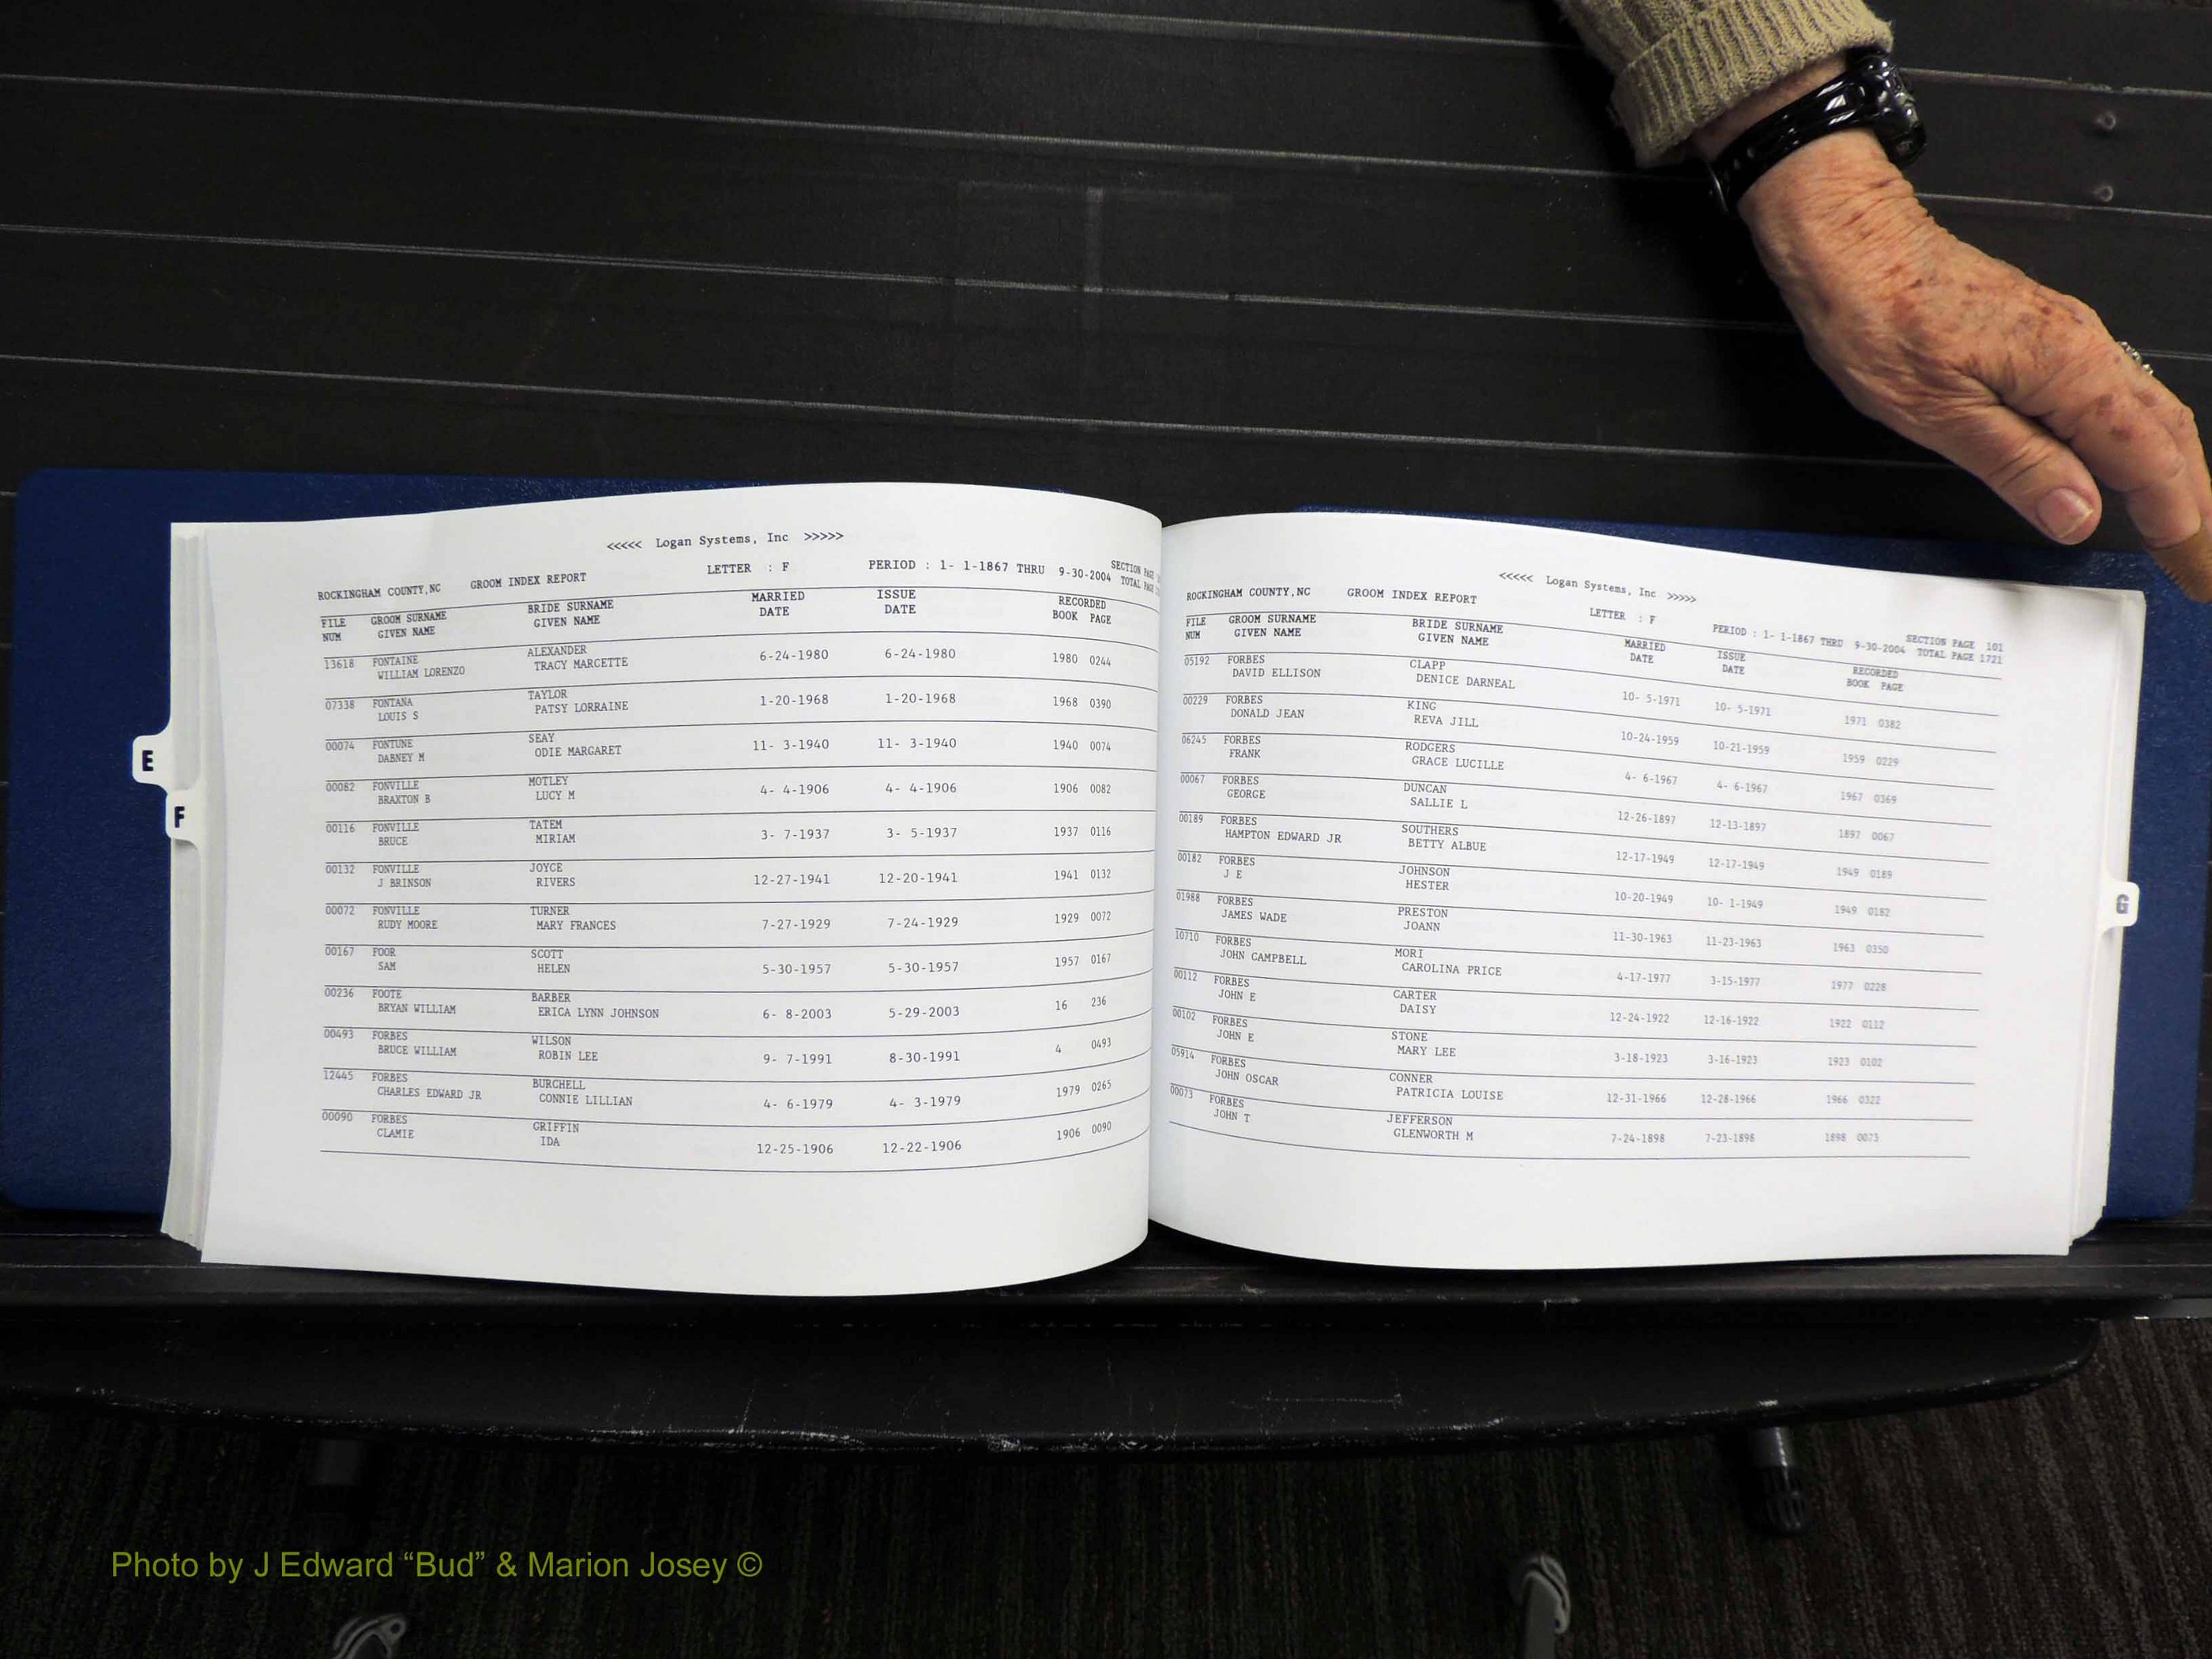 <<<<< Logan Systems, Inc >>>>>
ROCKINGHAM COUNTY,NC GROOM INDEX REPORT LETTER : F PERIOD : 1- 1-1867 THRU 9-30-2004 SECTION PAGE
TOTAL PAGE
FILE GROOM SURNAME BRIDE SURNAME MARRIED ISSUE RECORDED
NUM GIVEN NAME GIVEN NAME DATE DATE BOOK PAGE
13618 FONTAINE ALEXANDER 6-24-1980 6-24-1980 1980 0244
WILLIAM LORENZO TRACY MARCETTE
07338 FONTANA TAYLOR 1-20-1968 1-20-1968 1968 0390
LOUIS S PATSY LORRAINE
00074 FONTUNE SEAY 11- 3-1940 11- 3-1940 1940 0074
DABNEY M ODIE MARGARET
00082 FONVILLE MOTLEY 4- 4-1906 4- 4-1906 1906 0082
BRAXTON B LUCY M
00116 FONVILLE TATEM 3- 7-1937 3- 5-1937 1937 0116
BRUCE MIRIAM
00132 FONVILLE JOYCE 12-27-1941 12-20-1941 1941 0132
J BRINSON RIVERS
00072 FONVILLE TURNER 7-27-1929 7-24-1929 1929 0072
RUDY MOORE MARY FRANCES
00167 FOOR SCOTT 5-30-1957 5-30-1957 1957 0167
SAM HELEN
00236 FOOTE BARBER 6- 8-2003 5-29-2003 16 236
BRYAN WILLIAM ERICA LYNN JOHNSON
00493 FORBES WILSON 9- 7-1991 8-30-1991 4 0493
BRUCE WILLIAM ROBIN LEE
12445 FORBES BURCHELL 4- 6-1979 4- 3-1979 1979 0265
CHARLES EDWARD JR CONNIE LILLIAN
00090 FORBES GRIFFIN 12-25-1906 12-22-1906 1906 0090
CLAMIE IDA
E
F
<<<<< Logan Systems, Inc >>>>>
ROCKINGHAM COUNTY,NC GROOM INDEX REPORT LETTER : F PERIOD : 1- 1-1867 THRU 9-30-2004 SECTION PAGE 101
TOTAL PAGE 1721
FILE GROOM SURNAME BRIDE SURNAME MARRIED ISSUE RECORDED
NUM GIVEN NAME GIVEN NAME DATE DATE BOOK PAGE
05192 FORBES CLAPP 10- 5-1971 10- 5-1971 1971 0382
DAVID ELLISON DENICE DARNEAL
00229 FORBES KING 10-24-1959 10-21-1959 1959 0229
DONALD JEAN REVA JILL
06245 FORBES RODGERS 4- 6-1967 4- 6-1967 1967 0369
FRANK GRACE LUCILLE
00067 FORBES DUNCAN 12-26-1897 12-13-1897 1897 0067
GEORGE SALLIE L
00189 FORBES SOUTHERS 12-17-1949 12-17-1949 1949 0189
HAMPTON EDWARD JR BETTY ALBUE
00182 FORBES JOHNSON 10-20-1949 10- 1-1949 1949 0182
J E HESTER
01988 FORBES PRESTON 11-30-1963 11-23-1963 1963 0350
JAMES WADE JOANN
10710 FORBES MORI 4-17-1977 3-15-1977 1977 0228
JOHN CAMPBELL CAROLINA PRICE
00112 FORBES CARTER 12-24-1922 12-16-1922 1922 0112
JOHN E DAISY
00102 FORBES STONE 3-18-1923 3-16-1923 1923 0102
JOHN E MARY LEE
05914 FORBES CONNER 12-31-1966 12-28-1966 1966 0322
JOHN OSCAR PATRICIA LOUISE
00073 FORBES JEFFERSON 7-24-1898 7-23-1898 1898 0073
JOHN T GLENWORTH M
G
Photo by J Edward “Bud” & Marion Josey ©